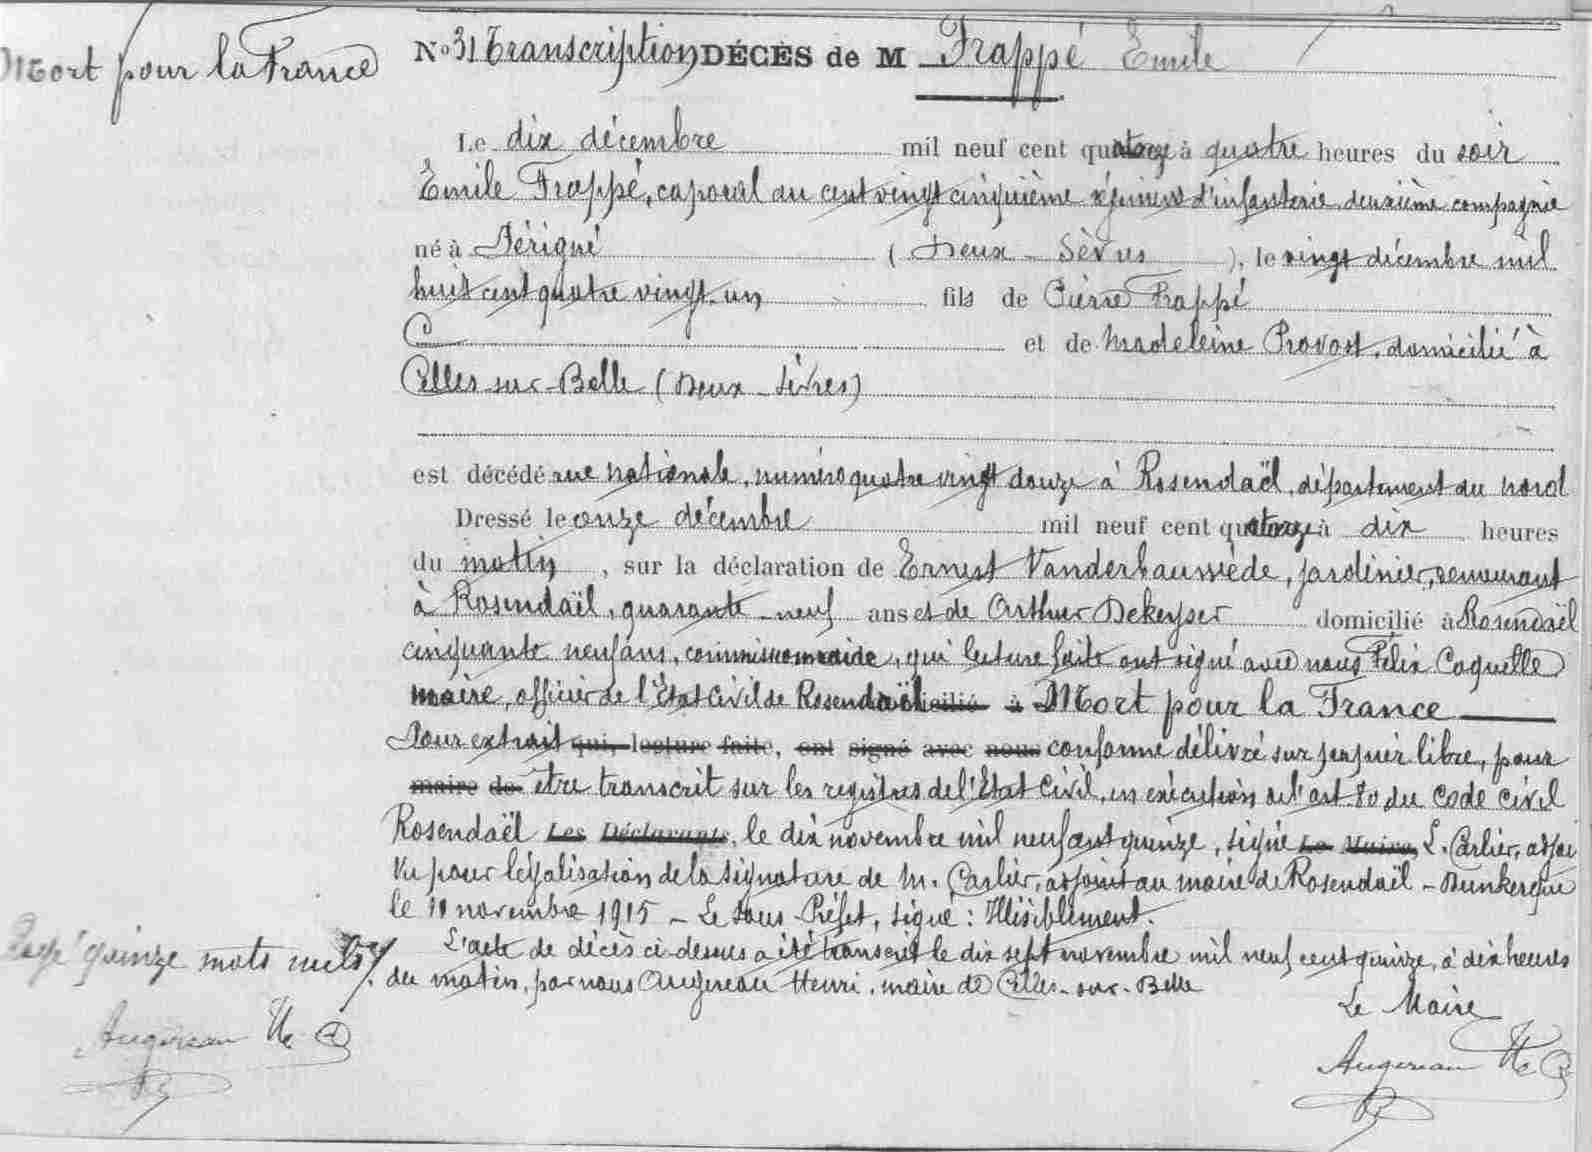 Mort pour la France
No 31 Transcription DÉCÈS de M Frappé Emile
Le dix décembre mil neuf cent quatorze à quatre heures du soir
Emile Frappé, caporal au cent vingt cinquième régiment d'infanterie deuxième compagnie
né à Périgné (Deux-Sèvres), le vingt décembre mil
huit cent quatre vingt-un fils de Pierre Frappé
et de Madeleine Provost, domicilié à
Celles-sur-Belle (Deux-Sèvres)
est décédé rue nationale, numéro quatre vingt douze à Rosendaël, département du nord
Dressé le onze décembre mil neuf cent quatorze à dix heures
du matin, sur la déclaration de Ernest Vanderbauwède, jardinier, demeurant
à Rosendaël, quarante-neuf ans et de Arthur Dekeyser domicilié à Rosendaël
cinquante neuf ans, commissionnaire, qui lecture faite ont signé avec nous Félix Coquelle
maire, officier de l'Etat Civil de Rosendaël à Mort pour la France
Pour extrait qui, lecture faite, ont signé avec nous conforme délivré sur papier libre, pour
maire de être transcrit sur les registres de l'Etat Civil, en exécution de l'art. 80 du Code civil
Rosendaël Les Déclarants, le dix novembre mil neuf cent quinze, signé Le Maire, L. Carlier, adjoi
Vu pour légalisation de la signature de M. Carlier, adjoint au maire de Rosendaël - Dunkerque
le 10 novembre 1915 - Le Sous-Préfet, signé : Illisiblement.
L'acte de décès ci-dessus a été transcrit le dix sept novembre mil neuf cent quinze, à dix heures
du matin, par nous Augereau Henri, maire de Celles-sur-Belle
Rayé quinze mots nuls
Le Maire
Augereau H
Augereau H